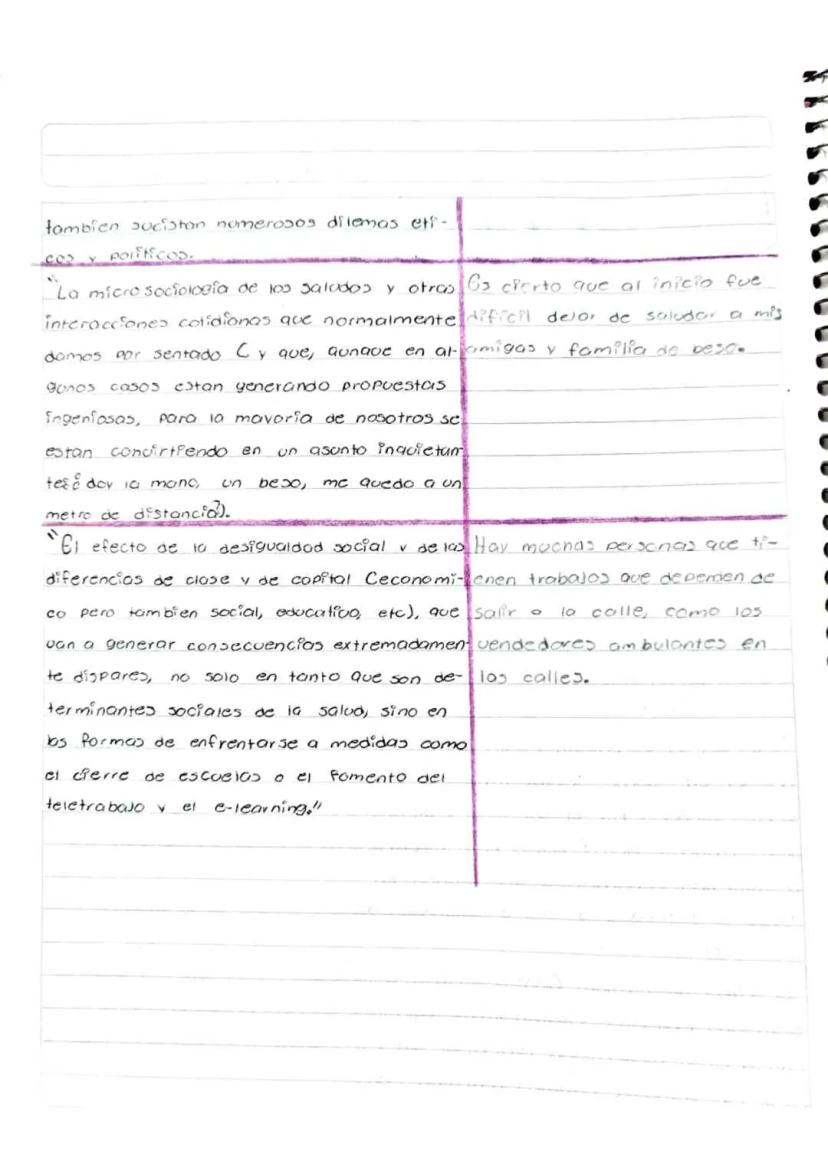 tambien sucistan numerosos dilemas eti-
cos y políticos.
"La microsociología de los saludos y otras
interacciones cotidianas que normalmente
damos por sentado (y que, aunque en al-
gunos casos estan generando propuestas
ingeniosas, para la mayoría de nosotros se
estan convirtiendo en un asunto inquietan
tes¿ doy la mano, un beso, me quedo a un
metro de distancia?).
Es cierto que al inicio fue
difícil dejar de saludar a mis
amigas y familia de beso.
"El efecto de la desigualdad social y de las
diferencias de clase y de capital (economi-
co pero tambien social, educativo, etc), que
van a generar consecuencias extremadamen
te dispares, no solo en tanto que son de-
terminantes sociales de la salud, sino en
los formas de enfrentarse a medidas como
el cierre de escuelas o el fomento del
teletrabajo y el e-learning."
Hay muchas personas que ti-
enen trabajos que dependen de
salir a la calle, como los
vendedores ambulantes en
las calles.